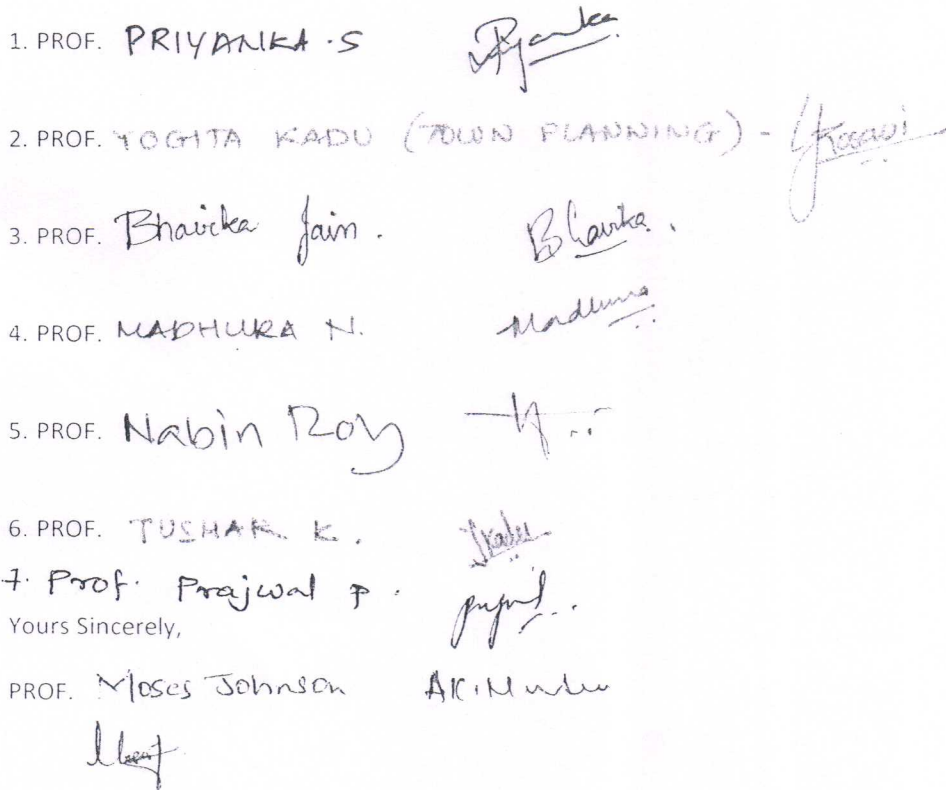 1. PROF. PRIYANKA .S Priyanka
2. PROF. YOGITA KADU (TOWN PLANNING) -
3. PROF. Bhavika Jain . Bhavika .
4. PROF. MADHURA N. Madhura
5. PROF. Nabin Roy
6. PROF. TUSHAR K. TKadu
7. Prof. Prajwal P .
Yours Sincerely,
PROF. Moses Johnson